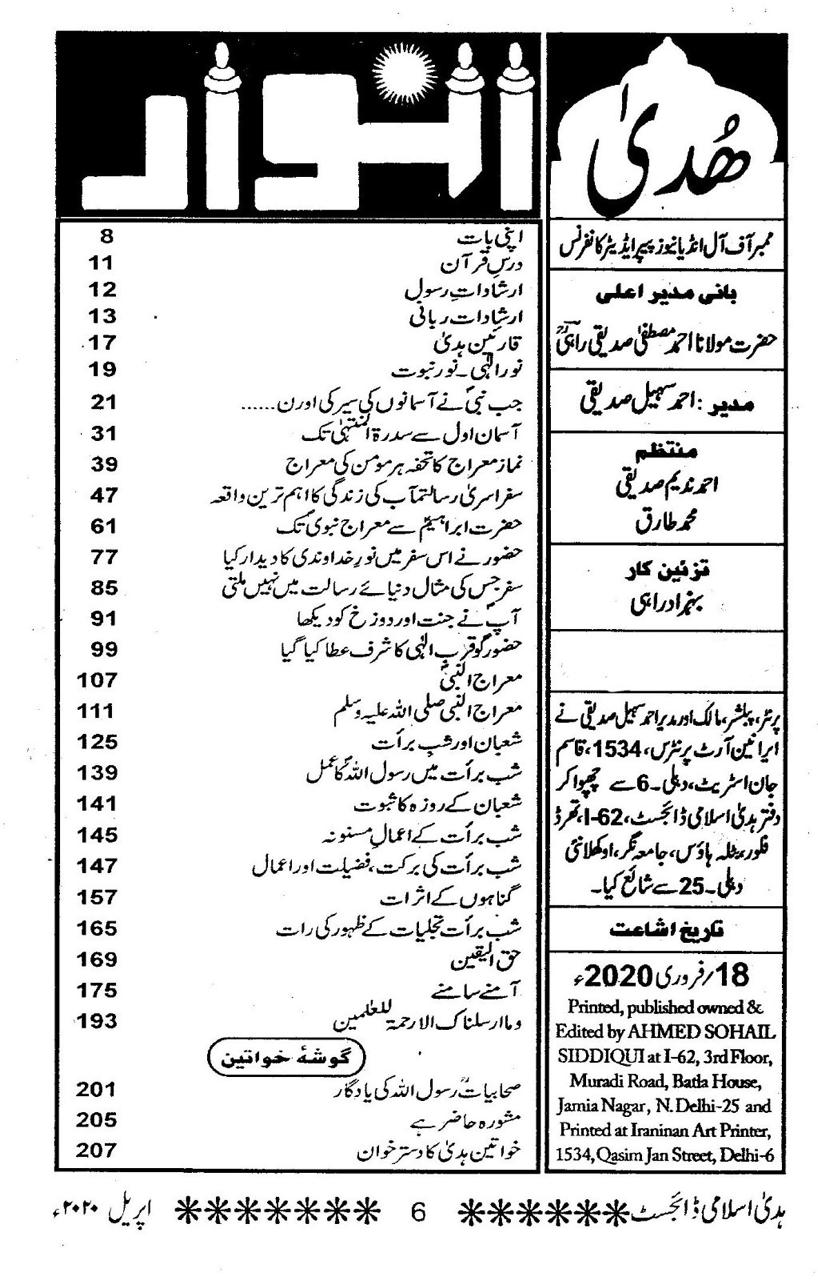 ھُدیٰ
ممبر آف آل انڈیا نیوز پیپر ایڈیٹر کانفرنس
بانی مدیر اعلی
حضرت مولانا احمد مصطفیٰ صدیقی راہیؒ
مدیر : احمد سہیل صدیقی
منتظم
احمد ندیم صدیقی
محمد طارق
تزئین کار
بہزاد راہی
پرنٹر، پبلشر، مالک اور مدیر احمد سہیل صدیقی نے
ایرانین آرٹ پرنٹرس، 1534، قاسم
جان اسٹریٹ، دہلی۔6 سے چھپوا کر
دفتر ہدیٰ اسلامی ڈائجسٹ، I-62، تھرڈ
فلور، بٹلہ ہاؤس، جامعہ نگر، اوکھلا نئی
دہلی۔25 سے شائع کیا۔
تاریخ اشاعت
18/فروری 2020ء
Printed, published owned &
Edited by AHMED SOHAIL
SIDDIQUI at I-62, 3rd Floor,
Muradi Road, Batla House,
Jamia Nagar, N. Delhi-25 and
Printed at Iraninan Art Printer,
1534, Qasim Jan Street, Delhi-6
انوار
اپنی بات 8
درس قرآن 11
ارشادات رسول 12
ارشادات ربانی 13
قارئین ہدیٰ 17
نور الٰہی۔نور نبوت 19
جب نبیؐ نے آسمانوں کی سیر کی اور ن...... 21
آسمان اول سے سدرۃ المنتہیٰ تک 31
نماز معراج کا تحفہ ہر مومن کی معراج 39
سفر اسریٰ رسالتمآب کی زندگی کا اہم ترین واقعہ 47
حضرت ابراہیمؑ سے معراج نبویؐ تک 61
حضور نے اس سفر میں نور خداوندی کا دیدار کیا 77
سفر جس کی مثال دنیائے رسالت میں نہیں ملتی 85
آپؐ نے جنت اور دوزخ کو دیکھا 91
حضورؐ کو قرب الٰہی کا شرف عطا کیا گیا 99
معراج النبیؐ 107
معراج النبی صلی اللہ علیہ وسلم 111
شعبان اور شب برأت 125
شب برأت میں رسول اللہؐ کا عمل 139
شعبان کے روزہ کا ثبوت 141
شب برأت کے اعمال مسنونہ 145
شب برأت کی برکت، فضیلت اور اعمال 147
گناہوں کے اثرات 157
شب برأت تجلیات کے ظہور کی رات 165
حق الیقین 169
آمنے سامنے 175
وما ارسلناک الا رحمۃ للعٰلمین 193
گوشۂ خواتین
صحابیاتؓ رسول اللہ کی یادگار 201
مشورہ حاضر ہے 205
خواتین ہدیٰ کا دسترخوان 207
ہدیٰ اسلامی ڈائجسٹ ✻✻✻✻✻✻ 6 ✻✻✻✻✻✻✻ اپریل ۲۰۲۰ء